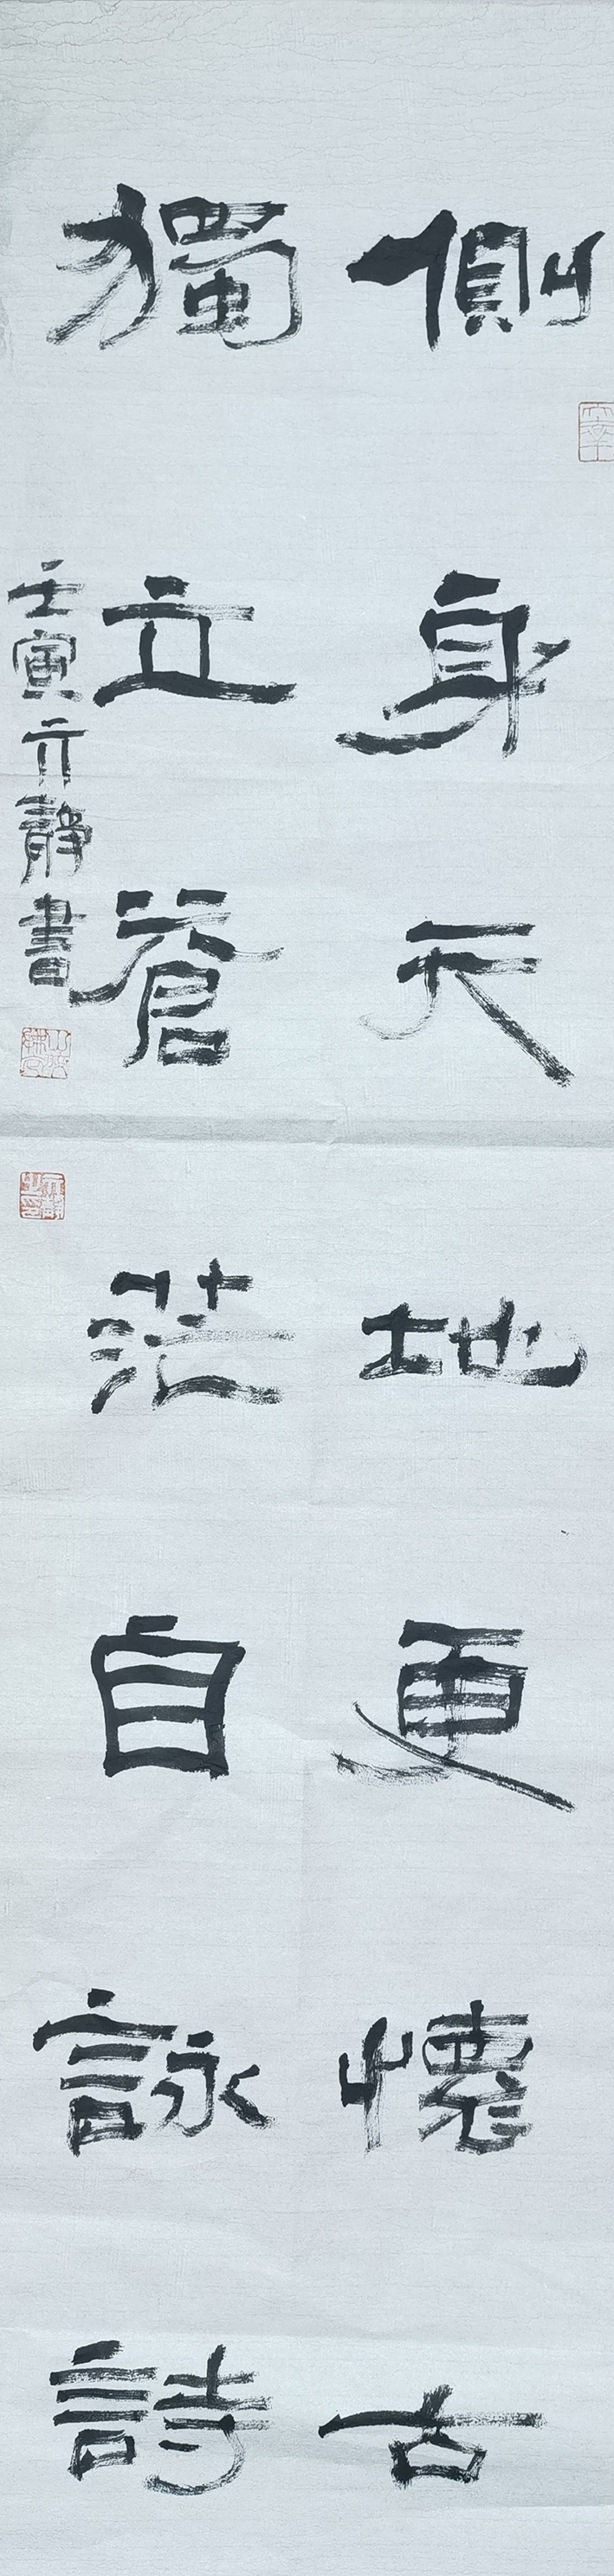 側身天地更懷古
獨立蒼茫自詠詩
壬寅亓靜書